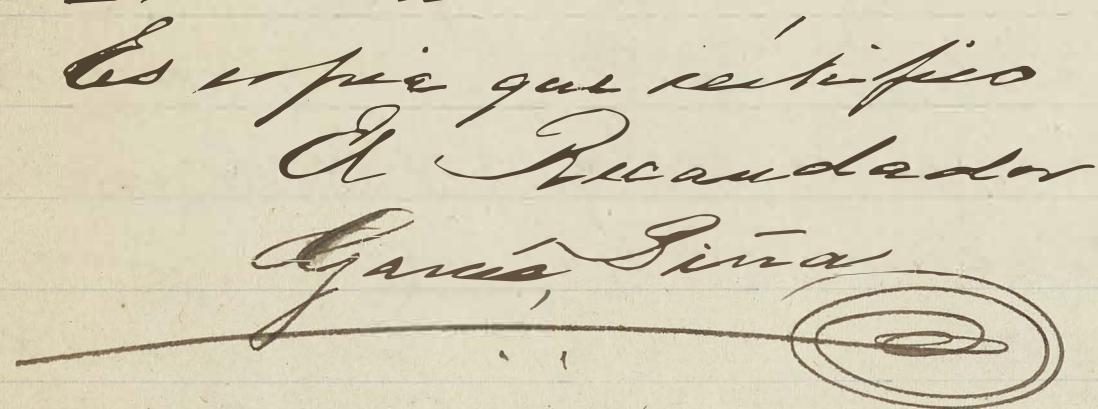 Es copia que certifico
El Recaudador
García Piña